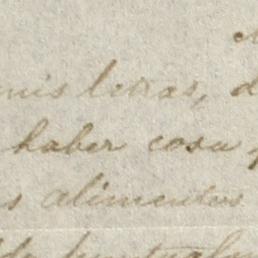 mis letras, d
haber cosa
s alimentos